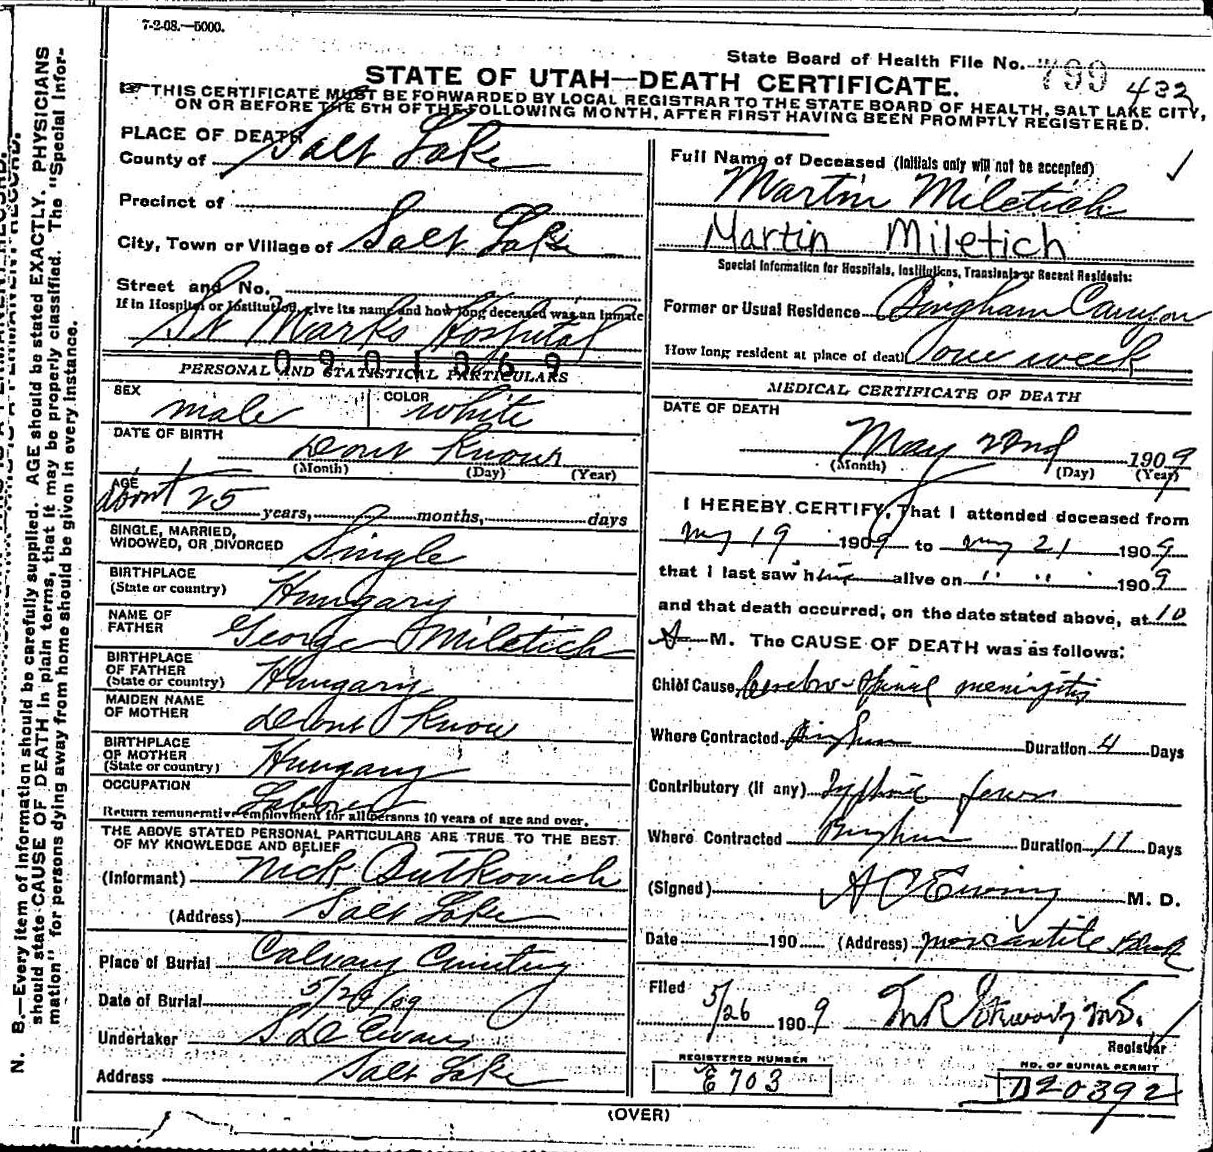 7-2-08.—5000.
State Board of Health File No. 799 432
STATE OF UTAH—DEATH CERTIFICATE.
THIS CERTIFICATE MUST BE FORWARDED BY LOCAL REGISTRAR TO THE STATE BOARD OF HEALTH, SALT LAKE CITY,
ON OR BEFORE THE 5TH OF THE FOLLOWING MONTH, AFTER FIRST HAVING BEEN PROMPTLY REGISTERED.
PLACE OF DEATH
County of Salt Lake
Precinct of
City, Town or Village of Salt Lake
Street and No.
If in Hospital or Institution, give its name and how long deceased was an inmate
St Marks Hospital
0901369
PERSONAL AND STATISTICAL PARTICULARS
SEX male COLOR white
DATE OF BIRTH Dont Know
(Month) (Day) (Year)
AGE
about 25 years, months, days
SINGLE, MARRIED,
WIDOWED, OR DIVORCED Single
BIRTHPLACE
(State or country) Hungary
NAME OF
FATHER George Miletich
BIRTHPLACE
OF FATHER
(State or country) Hungary
MAIDEN NAME
OF MOTHER Dont Know
BIRTHPLACE
OF MOTHER
(State or country) Hungary
OCCUPATION
Laborer
Return remunerative employment for all persons 10 years of age and over.
THE ABOVE STATED PERSONAL PARTICULARS ARE TRUE TO THE BEST
OF MY KNOWLEDGE AND BELIEF
(Informant) Nick Butkovich
(Address) Salt Lake
Place of Burial Calvary Cemetery
Date of Burial 5/26/09
Undertaker S D Evans
Address Salt Lake
Full Name of Deceased (Initials only will not be accepted)
Martin Miletich
Martin Miletich
Special Information for Hospitals, Institutions, Transients or Recent Residents:
Former or Usual Residence Bingham Canyon
How long resident at place of death one week
MEDICAL CERTIFICATE OF DEATH
DATE OF DEATH
May 22nd 1909
(Month) (Day) (Year)
I HEREBY CERTIFY, That I attended deceased from
My 19 1909 to my 21 1909
that I last saw him alive on " " 1909
and that death occurred, on the date stated above, at 10
A M. The CAUSE OF DEATH was as follows:
Chief Cause Cerebro-Spinal meningitis
Where Contracted Bingham Duration 4 Days
Contributory (if any) Typhoid fever
Where Contracted Bingham Duration 11 Days
(Signed) A C Ewing M. D.
Date 190 (Address) Mercantile Block
Filed
5/26 1909 M.D.
Registrar
REGISTERED NUMBER
E 703
NO. OF BURIAL PERMIT
D20392
(OVER)
N. B.—Every item of information should be carefully supplied. AGE should be stated EXACTLY. PHYSICIANS
should state CAUSE OF DEATH in plain terms, that it may be properly classified. The "Special Infor-
mation" for persons dying away from home should be given in every instance.